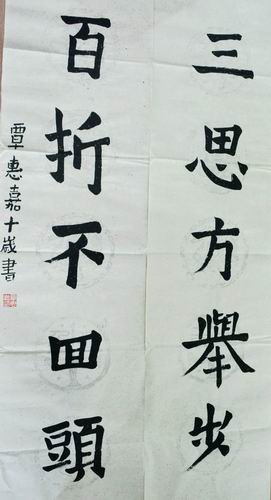 三思方舉步
百折不回頭
覃惠嘉十歲書